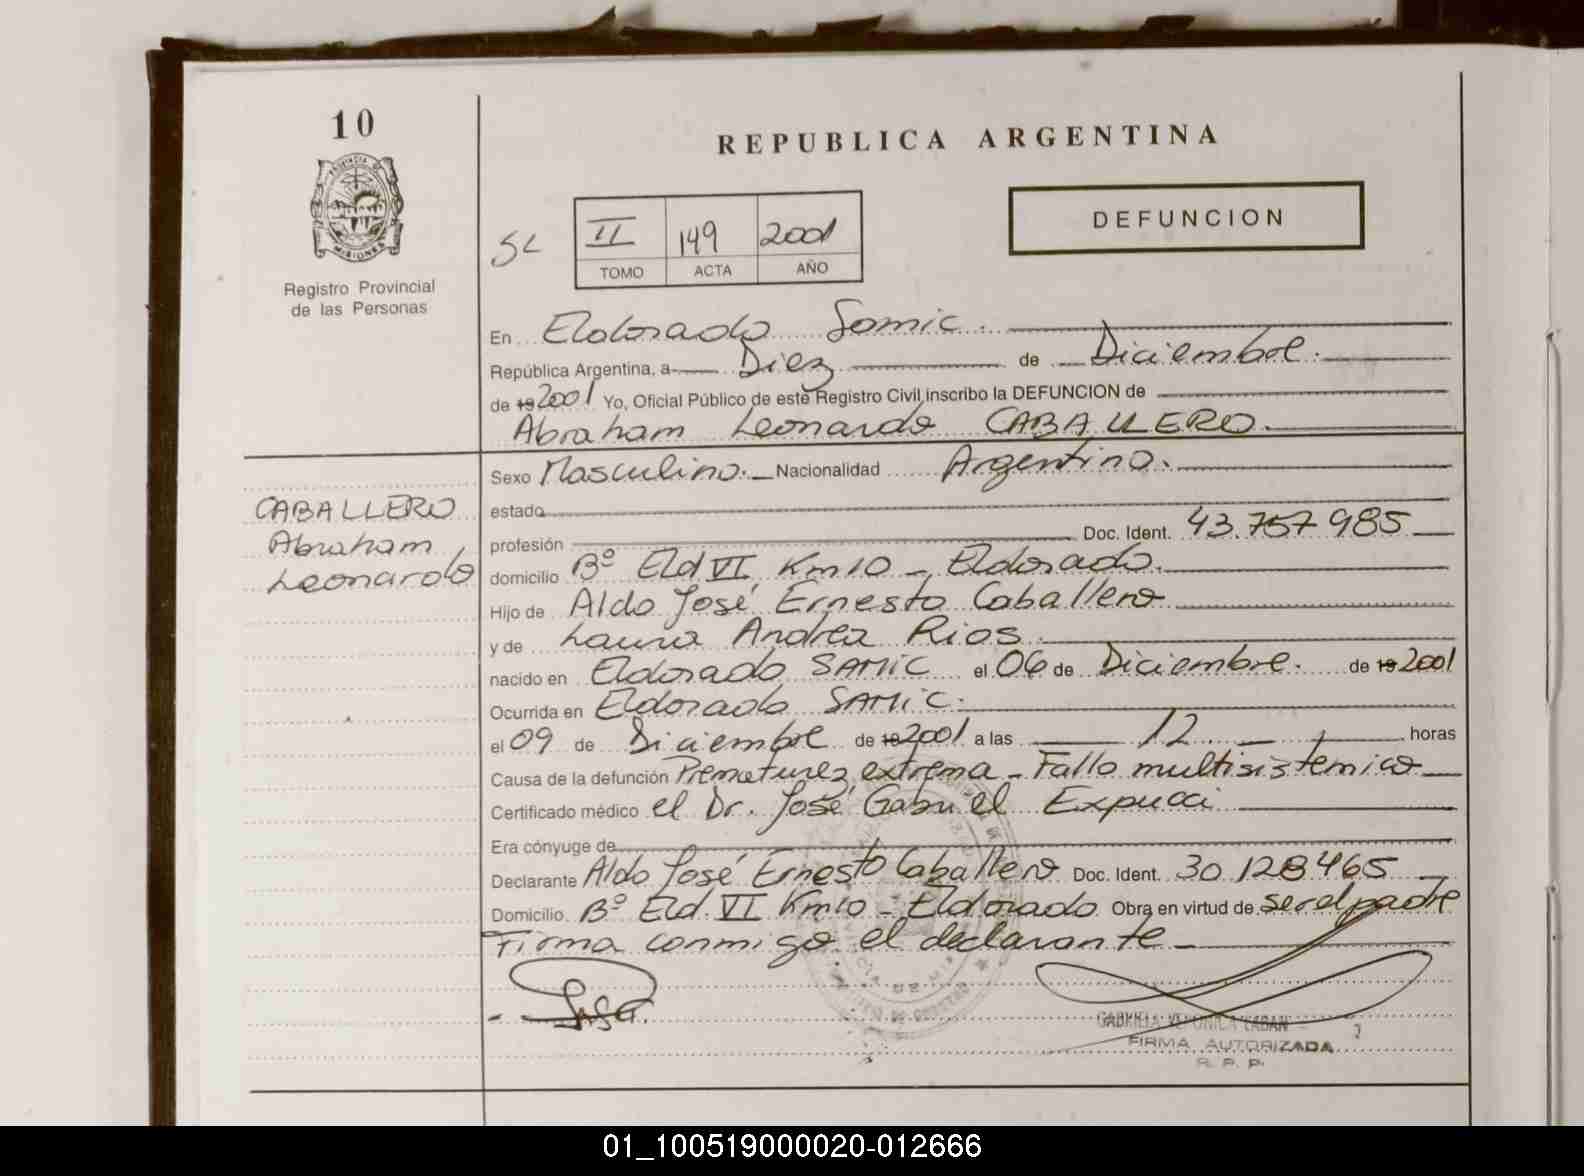 10
REPUBLICA ARGENTINA
PROVINCIA DE
MISIONES
Registro Provincial
de las Personas
DEFUNCION
SL
II 149 2001
TOMO ACTA AÑO
En Eldorado Samic.
República Argentina, a Diez de Diciembre.
de 19 2001 Yo, Oficial Público de este Registro Civil inscribo la DEFUNCION de
Abraham Leonardo CABALLERO.
CABALLERO
Abraham
Leonardo
Sexo Masculino. Nacionalidad Argentina.
estado
profesión Doc. Ident. 43.757985
domicilio Bº Eld VI Km 10 - Eldorado.
Hijo de Aldo José Ernesto Caballero
y de Laura Andrea Rios.
nacido en Eldorado SAMIC el 06 de Diciembre. de 19 2001
Ocurrida en Eldorado SAMIC.
el 09 de Diciembre de 19 2001 a las 12 horas
Causa de la defunción Prematurez extrema - Fallo multisistemico
Certificado médico el Dr. José Gabriel Expucci
Era cónyuge de
Declarante Aldo José Ernesto Caballero Doc. Ident. 30128465
Domicilio. Bº Eld. VI Km10 - Eldorado Obra en virtud de ser el padre
Firma conmigo el declarante -
FIRMA AUTORIZADA
R. P. P.
01_100519000020-012666